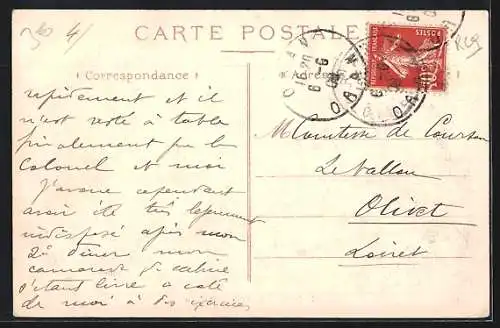 4/
CARTE POSTALE
Correspondance
Adresse
REPUBLIQUE FRANÇAISE
POSTES
10
ORAN
ORAN
rapidement et il
n'est resté à table
finalement que le
colonel et moi
J'avoue cependant
avoir été très légèrement
indisposé après mon
2e diner mon
camarade de cabine
s'étant livré à côté
de moi à des exercices
Comtesse de Courson
Le Vallon
Olivet
Loiret